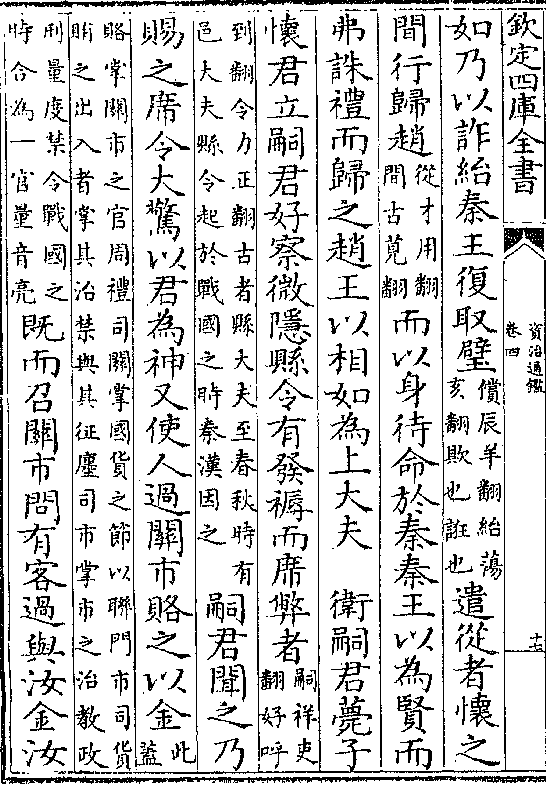 欽定四庫全書
資治通鑑
卷四
十七
如乃以詐紿秦王復取璧償辰羊翻紿蕩亥翻欺也誑也遣從者懷之
間行歸趙從才用翻間古莧翻而以身待命於秦秦王以為賢而
弗誅禮而歸之趙王以相如為上大夫 衛嗣君薨子
懷君立嗣君好察微隱縣令有發褥而席弊者嗣祥吏翻好呼
到翻令力正翻古者縣大夫至春秋時有邑大夫縣令起於戰國之時秦漢因之嗣君聞之乃
賜之席令大驚以君為神又使人過關市賂之以金此蓋
賂掌關市之官周禮司關掌國貨之節以聯門市司貨賄之出入者掌其治禁與其征廛司市掌市之治教政
刑量度禁令戰國之時合為一官量音亮既而召關市問有客過與汝金汝